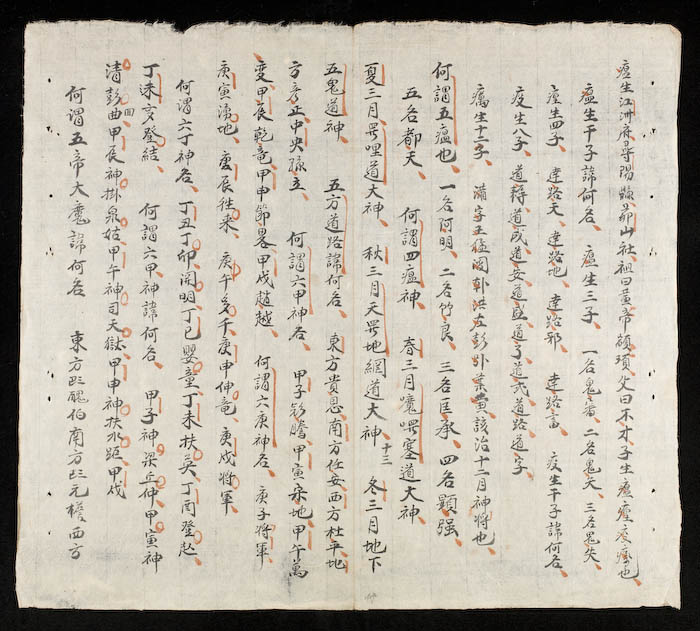 瘟生江州府尋陽縣茆山社祖曰黃帝顓頊父曰不才子生瘟𤺊疫癘也
瘟生干子諱何名 瘟生三子 一名鬼番二名鬼矢三名鬼失
生四子 達路天達路地達路邪達路富 疫生干子諱何名
疫生八子 道 道成道安道 道子道弍道路道字
癘生十二子 滿字王伍國 洪左彭 朱黃該治十二月神將也
何謂五瘟也 一名阿明 二名竹良 三名匡承 四名顯强
五名都天 何謂四瘟神 春三月 塞道大神
夏三月 哩道大神 秋三月天 地網道大神 十三 冬三月地下
五鬼道神 五方道路諱何名 東方貴恩南方任安西方杜平地
方彥正中央孫立 何謂六甲神名 甲子 甲寅 地甲午萬
變甲辰乾竜甲申節畧甲戌趙越 何謂六庚神名 庚子將軍
庚寅湧地 庚辰徃来 庚午多千庚申伸竜庚戌將軍
何謂六丁神名 丁丑丁卯開明丁巳嬰童丁未扶 丁酉登
丁未亥登結 何謂六甲神諱何名 甲子神梁丘仲甲寅神
清 曲甲辰神掛泉姑甲午神司天獄甲申神扶水距甲戌
何謂五帝大魔諱何名 東方巴醜伯南方巴元 西方